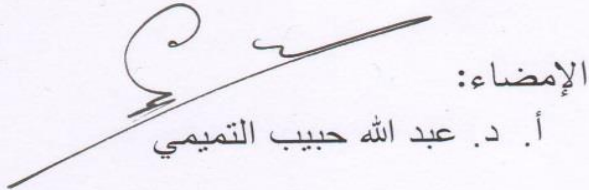 الإمضاء:
أ. د. عبد الله حبيب التميمي